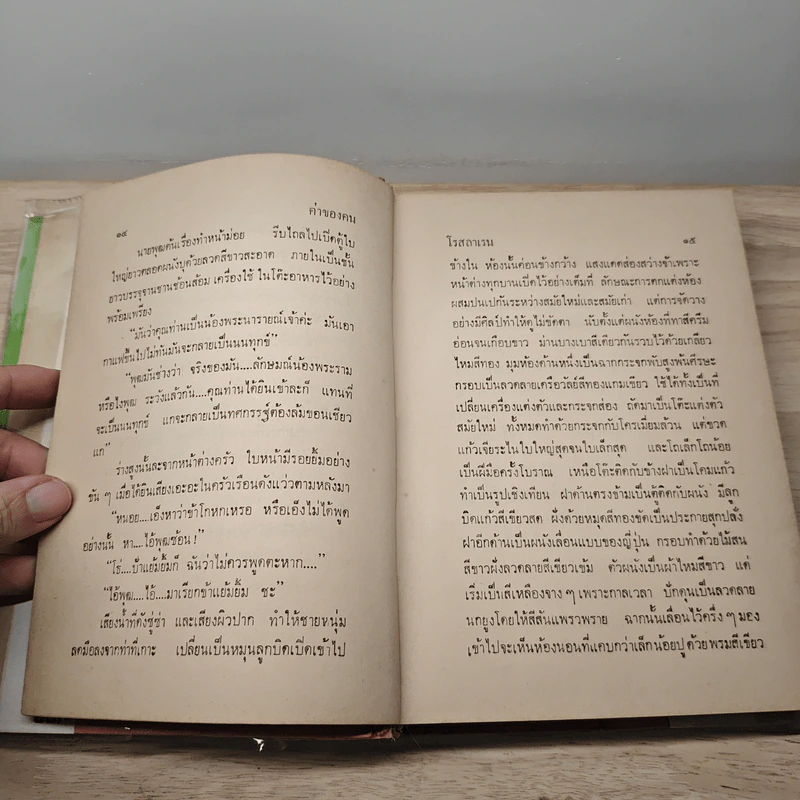 ๑๔
ค่าของคน
นายพุฒต้นเรื่องทำหน้าม่อย รีบไถลไปเปิดตู้ใบ
ใหญ่ยาวตลอดผนังบุด้วยลวดสีขาวสะอาด ภายในเป็นชั้น
ยาวบรรจุจานชามช้อนส้อม เครื่องใช้ ในโต๊ะอาหารไว้อย่าง
พร้อมเพรียง
“มันว่าคุณท่านเป็นน้องพระนารายณ์เจ้าค่ะ มันเอา
กาแฟขึ้นไปไม่ทันมันจะกลายเป็นนนทุกข์”
“พุฒมันช่างว่า จริงของมัน....ลักษมณ์น้องพระราม
หรือไงพุฒ ระวังแล้วกัน....คุณท่านได้ยินเข้าละก็ แทนที่
จะเป็นนนทุกข์ แกจะกลายเป็นทศกรรฐ์ต้องล้มขอนเชียว
แก”
ร่างสูงนั้นละจากหน้าต่างครัว ใบหน้ามีรอยยิ้มอย่าง
ขัน ๆ เมื่อได้ยินเสียงเอะอะในครัวเรือนดังแว่วตามหลังมา
“หนอย....เอ็งหาว่าข้าโกหกเหรอ หรือเอ็งไม่ได้พูด
อย่างนั้น หา....ไอ้พุฒซ้อน!”
“โธ่....ป้าแย้มยิ้มก็ ฉันว่าไม่ควรพูดตะหาก....”
“ไอ้พุฒ....ไอ้....มาเรียกข้าแย้มยิ้ม ชะ”
เสียงน้ำที่ดังซู่ซ่า และเสียงผิวปาก ทำให้ชายหนุ่ม
ลดมือลงจากท่าที่เกาะ เปลี่ยนเป็นหมุนลูกบิดเปิดเข้าไป
โรสลาเรน
๑๕
ข้างใน ห้องนั้นค่อนข้างกว้าง แสงแดดส่องสว่างเข้าเพราะ
หน้าต่างทุกบานเปิดไว้อย่างเต็มที่ ลักษณะการตกแต่งห้อง
ผสมปนเปกันระหว่างสมัยใหม่และสมัยเก่า แต่การจัดวาง
อย่างมีศิลป์ทำให้ดูไม่ขัดตา นับตั้งแต่ผนังห้องที่ทาสีครีม
อ่อนจนเกือบขาว ม่านบางเบาสีเดียวกันรวบไว้ด้วยเกลียว
ไหมสีทอง มุมห้องด้านหนึ่งเป็นฉากกระจกพับสูงพ้นศีรษะ
กรอบเป็นลวดลายเครือวัลย์สีทองแกมเขียว ใช้ได้ทั้งเป็นที่
เปลี่ยนเครื่องแต่งตัวและกระจกส่อง ถัดมาเป็นโต๊ะแต่งตัว
สมัยใหม่ ทั้งหมดทำด้วยกระจกกับโครเมี่ยมล้วน แต่ขวด
แก้วเจียระไนใบใหญ่สุดจนใบเล็กสุด และโถเล็กโถน้อย
เป็นฝีมือครั้งโบราณ เหนือโต๊ะติดกับข้างฝาเป็นโคมแก้ว
ทำเป็นรูปเชิงเทียน ฝาด้านตรงข้ามเป็นตู้ติดกับผนัง มีลูก
บิดแก้วสีเขียวสด ฝั่งด้วยหมุดสีทองขัดเป็นประกายสุกปลั่ง
ฝาอีกด้านเป็นผนังเลื่อนแบบของญี่ปุ่น กรอบทำด้วยไม้สน
สีขาวฝั่งลวดลายสีเขียวเข้ม ตัวผนังเป็นผ้าไหมสีขาว แต่
เริ่มเป็นสีเหลืองจาง ๆ เพราะกาลเวลา ปักดุนเป็นลวดลาย
นกยูงโดยให้สีสันแพรวพราย ฉากนั้นเลื่อนไว้ครึ่ง ๆ มอง
เข้าไปจะเห็นห้องนอนที่แคบกว่าเล็กน้อยปูด้วยพรมสีเขียว